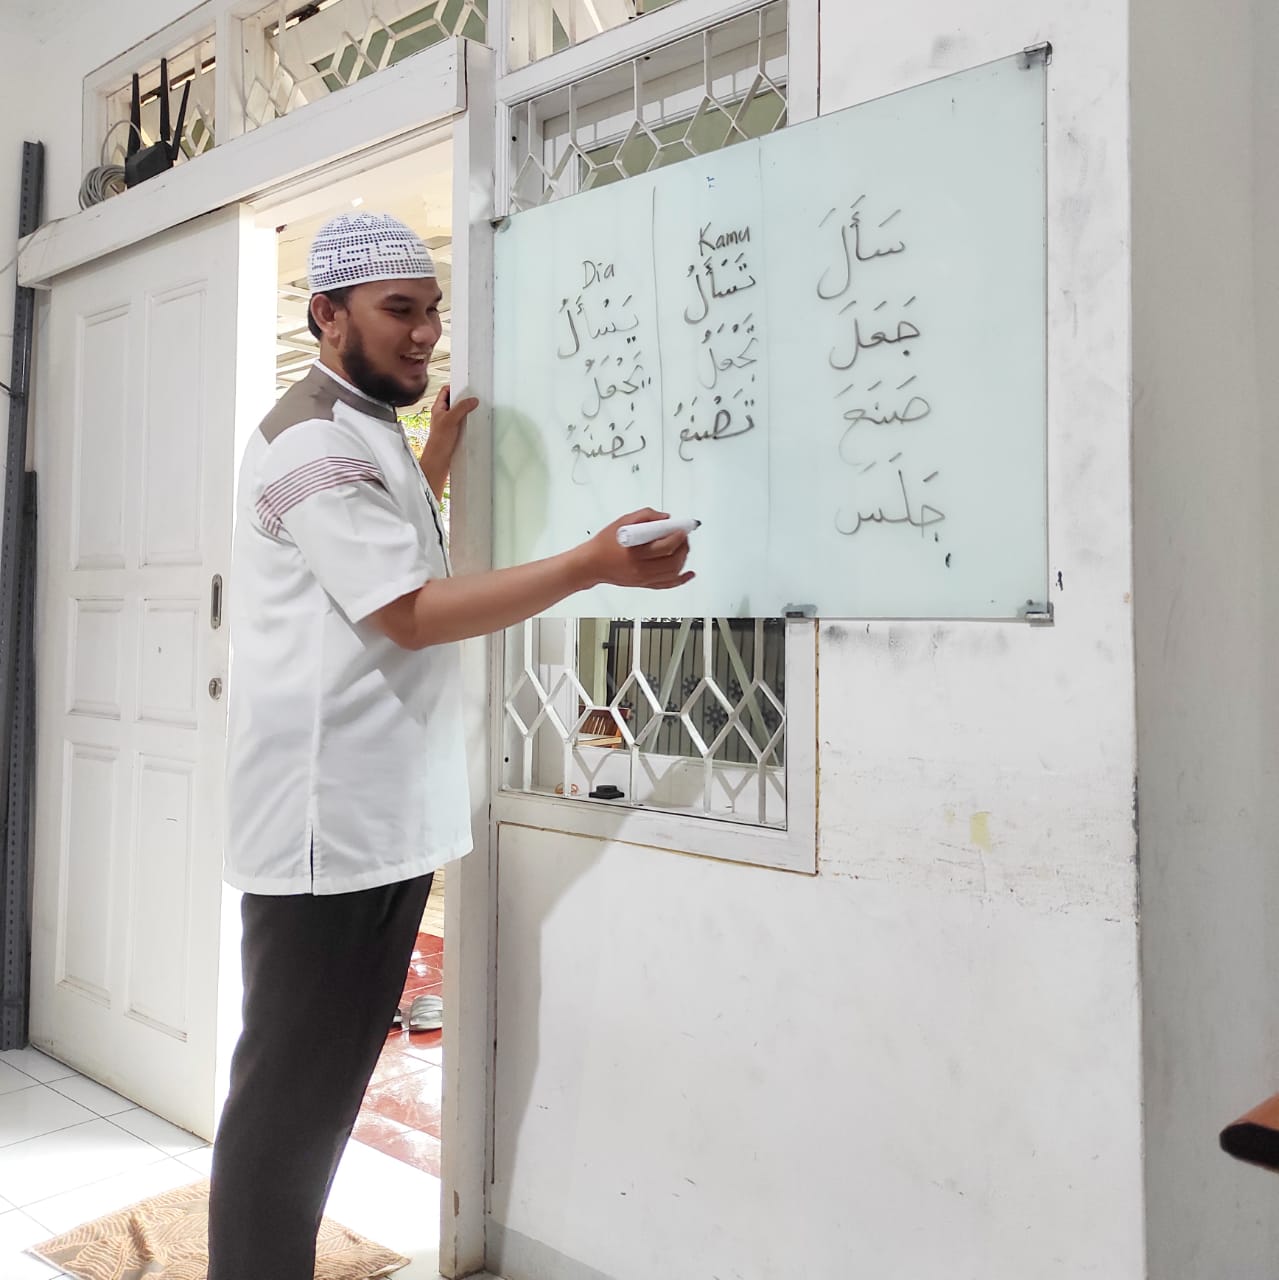 سَأَلَ
جَعَلَ
صَنَعَ
جَلَسَ
Kamu
تَسْأَلُ
تَجْعَلُ
تَصْنَعُ
Dia
يَسْأَلُ
يَجْعَلُ
يَصْنَعُ